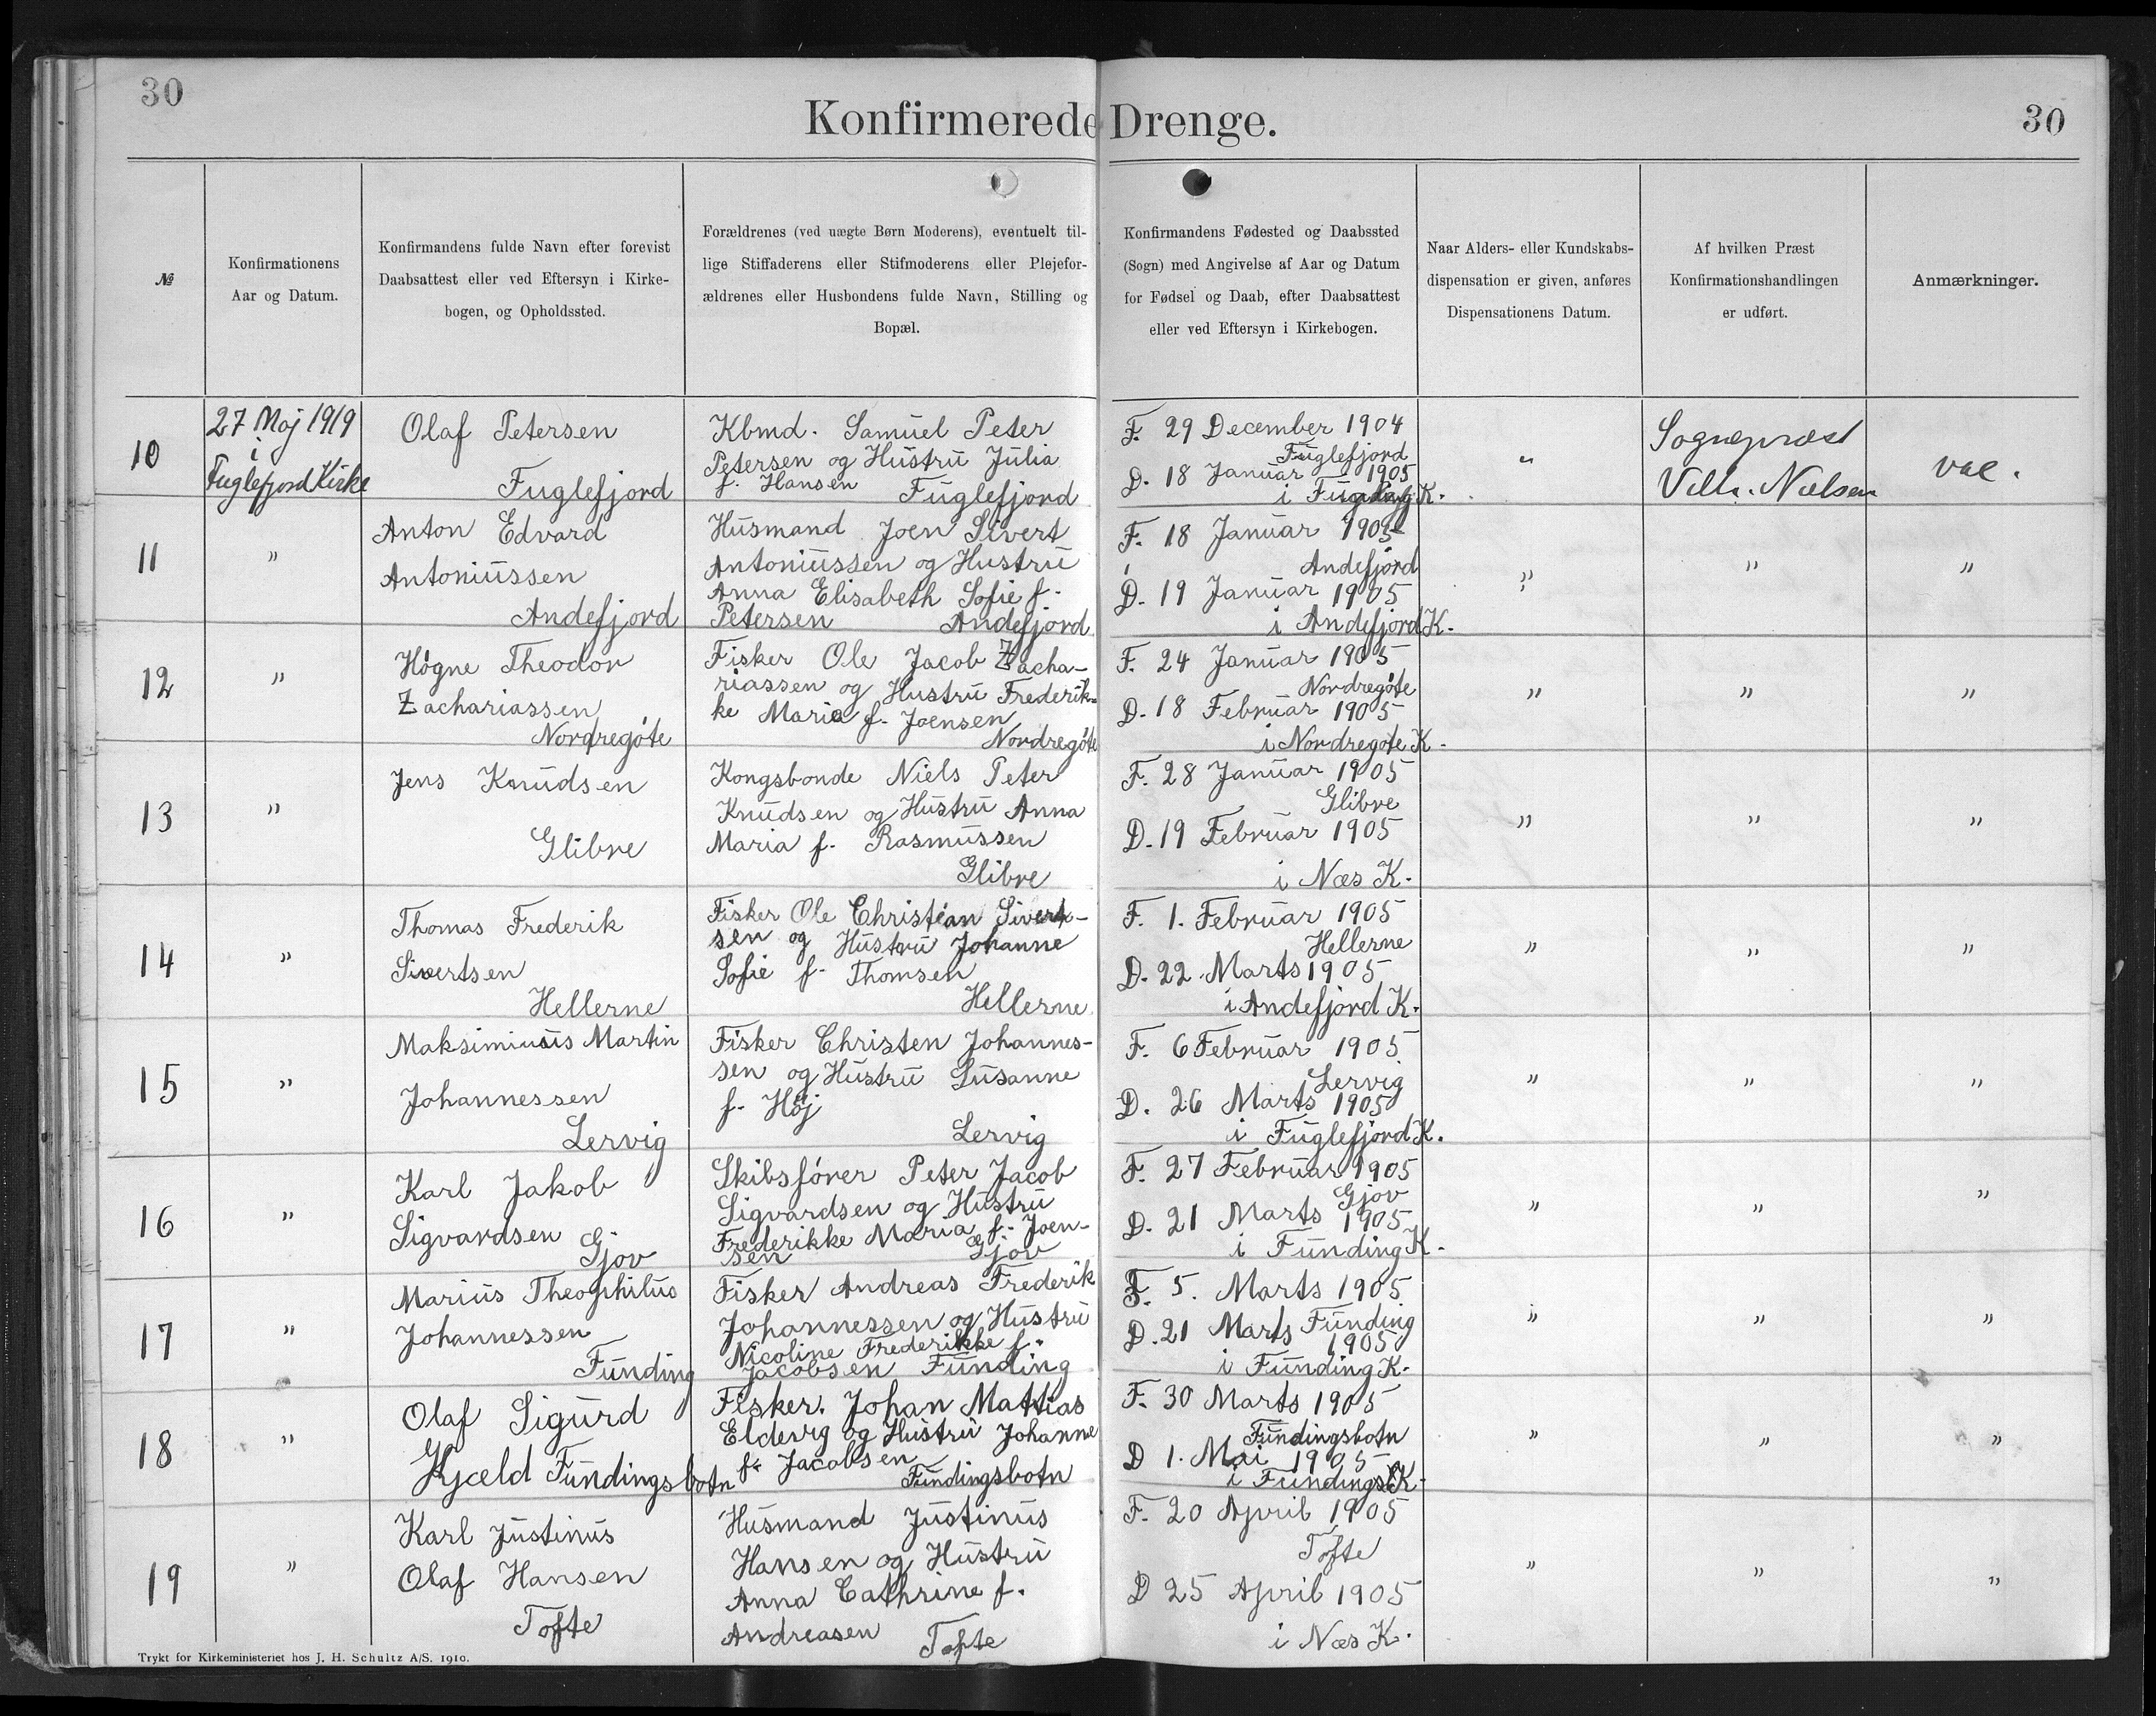 30
30
Konfirmerede Drenge.
№
Konfirmationens
Aar og Datum.
Konfirmandens fulde Navn efter forevist
Daabsattest eller ved Eftersyn i Kirke-
bogen, og Opholdssted.
Forældrenes (ved uægte Børn Moderens), eventuelt til-
lige Stiffaderens eller Stifmoderens eller Plejefor-
ældrenes eller Husbondens fulde Navn, Stilling og
Bopæl.
Konfirmandens Fødested og Daabssted
(Sogn) med Angivelse af Aar og Datum
for Fødsel og Daab, efter Daabsattest
eller ved Eftersyn i Kirkebogen.
Naar Alders- eller Kundskabs-
dispensation er given, anføres
Dispensationens Datum.
Af hvilken Præst
Konfirmationshandlingen
er udført.
Anmærkninger.
10
27 Maj 1919
i
Fuglefjord Kirke
Olaf Petersen
Fuglefjord
Kbmd. Samuel Peter
Petersen og Hustru Julia
f. Hansen Fuglefjord
F. 29 December 1904
Fuglefjord
D. 18 Januar 1905
i K.
"
Sognepræst
Vilh. Nielsen
vac.
11
"
Anton Edvard
Antoniussen
Andefjord
Husmand Joen Sivert
Antoniussen og Hustru
Anna Elisabeth Sofie f.
Petersen Andefjord
F. 18 Januar 1905
Andefjord
D. 19 Januar 1905
i Andefjord K.
"
"
"
12
"
Høgne Theodor
Zachariassen
Nordregøte
Fisker Ole Jacob Zacha-
riassen og Hustru Frederik-
ke Maria f. Joensen
Nordregøte
F. 24 Januar 1905
Nordregøte
D. 18 Februar 1905
i Nordregøte K.
"
"
"
13
"
Jens Knudsen
Glibre
Kongsbonde Niels Peter
Knudsen og Hustru Anna
Maria f. Rasmussen
Glibre
F. 28 Januar 1905
Glibre
D. 19 Februar 1905
i Næs K.
"
"
"
14
"
Thomas Frederik
Sivertsen
Hellerne
Fisker Ole Christian Sivert-
sen og Hustru Johanne
Sofie f. Thomsen
Hellerne
F. 1. Februar 1905
Hellerne
D. 22. Marts 1905
i Andefjord K.
"
"
"
15
"
Martin
Johannessen
Lervig
Fisker Christen Johannes-
sen og Hustru Susanne
f. Høj
Lervig
F. 6 Februar 1905
Lervig
D. 26 Marts 1905
i Fuglefjord K.
"
"
"
16
"
Karl Jakob
Sigvardsen
Gjov
Skibsfører Peter Jacob
Sigvardsen og Hustru
Frederikke Maria f. Joen-
sen Gjov
F. 27 Februar 1905
Gjov
D. 21 Marts 1905
i Funding K.
"
"
"
17
"
Marius Theophilus
Johannessen
Funding
Fisker Andreas Frederik
Johannessen og Hustru
Nicoline Frederikke f.
Jacobsen Funding
F. 5. Marts 1905
Funding
D. 21 Marts 1905
i Funding K.
"
"
"
18
"
Olaf Sigurd
Kjæld Fundingsbotn
Fisker. Johan Mattias
Eldevig og Hustru Johanne
f. Jacobsen
Fundingsbotn
F. 30 Marts 1905
Fundingsbotn
D 1. Mai 1905
i Fundingsb K.
"
"
"
19
"
Karl Justinus
Olaf Hansen
Tofte
Husmand Justinus
Hansen og Hustru
Anna Cathrine f.
Andreasen Tofte
F. 20 April 1905
Tofte
D 25 April 1905
i Næs K.
"
"
"
Trykt for Kirkeministeriet hos J. H. Schultz A/S. 1910.